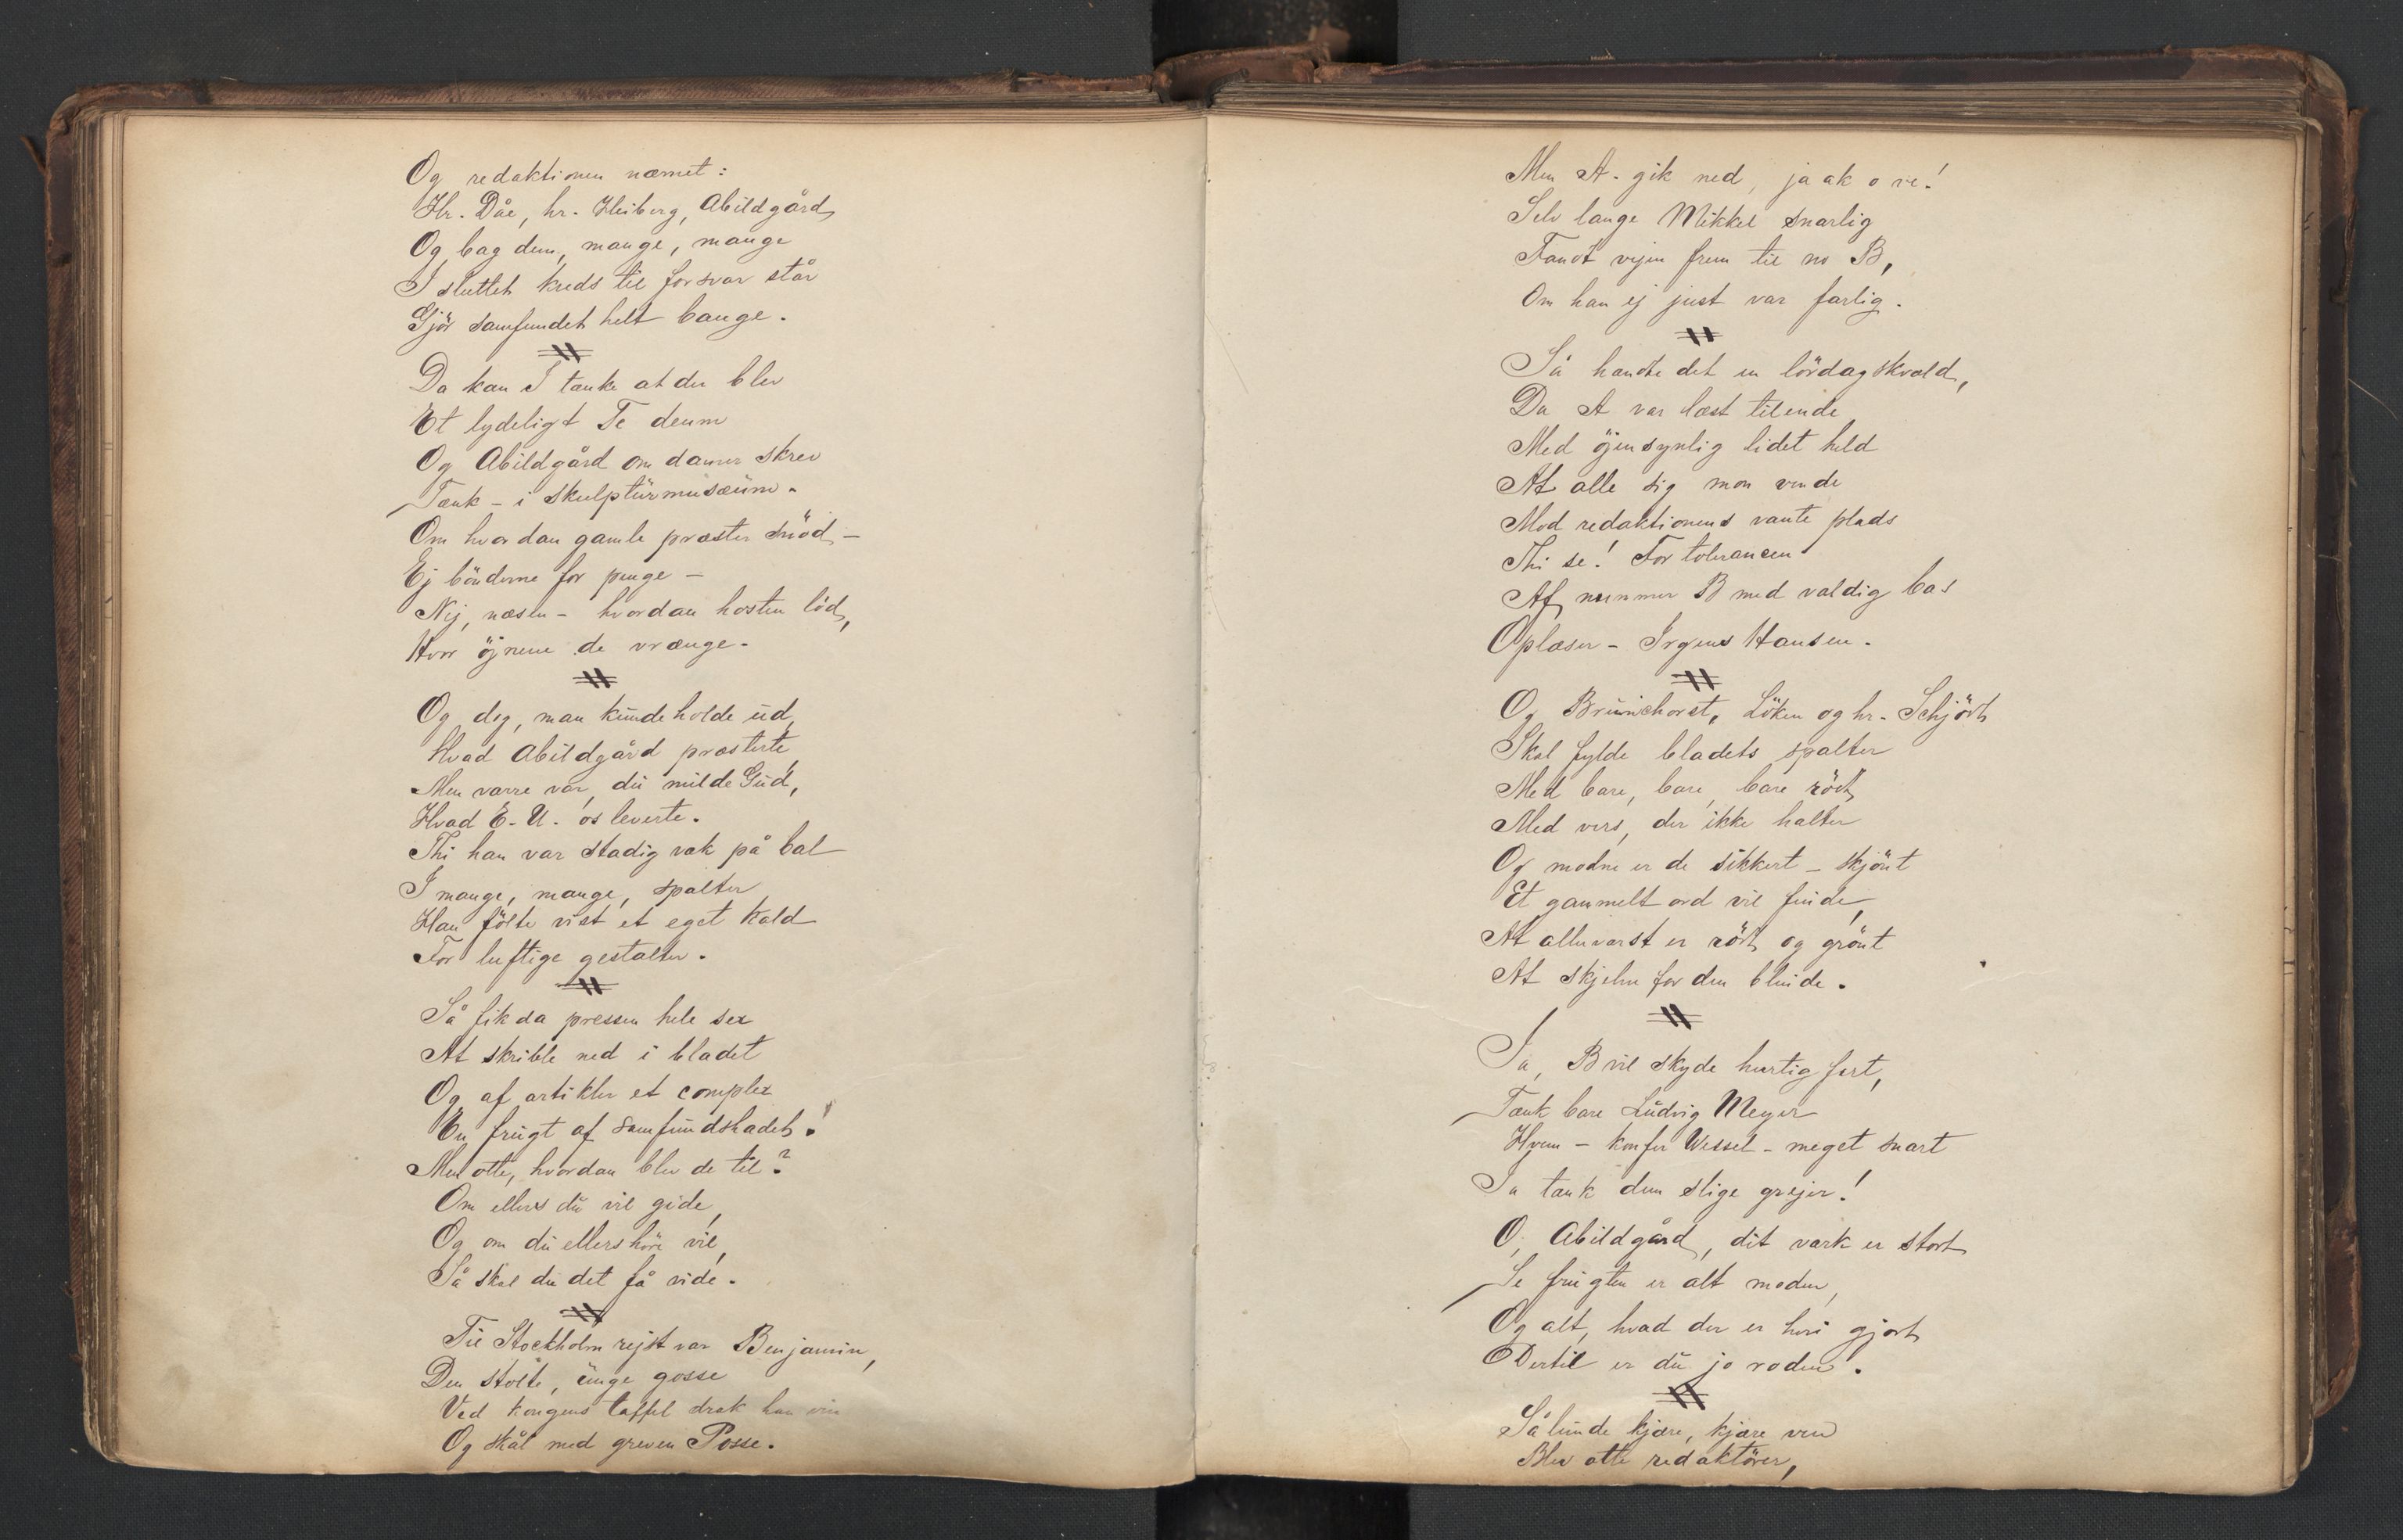 Og redaktionen nævnet:
Hr. Dåe, hr. Heiberg, Abildgård
Og bag dem, mange, mange
I sluttet kreds til forsvar står
Gjör samfundet helt bange.
Da kan I tænke at der blev
Et lydeligt Te deum
Og Abildgård om damer skrev
Tænk - i skulpturmusæum.
Om hvordan gamle præster snöd -
Ej bönderne for penge -
Nej, næsen - hvordan hosten löd,
Hvor öjnene de vrænge.
Og dog, man kunde holde ud,
Hvad Abildgård præsterte,
Men værre var, du milde Gud,
Hvad E. U. os leverte.
Thi han var stadig væk på bal
I mange, mange, spalter
Han fölte vist et eget kald
For luftige gestalter.
Så fik da pressen hele sex
At skrible ned i bladet
Og af artikler et complex
En frugt af samfundshadet!
Men otte, hvordan blev de til?
Om ellers du vil gide,
Og om du ellers höre vil,
Så skal du det få vide.
Til Stockholm rejst var Benjamin,
Den stolte, unge gosse
Ved kongens taffel drak han vin
Og skål med greven Posse.
Men A. gik ned, ja ak o ve!
Selv lange Mikkel snarlig
Fandt vejen frem til no B,
Om han ej just var farlig.
Så hændte det en lördagskvæld,
Da A var læst tilende
Med öjensynlig lidet held
At alle sig mon vende
Mod redaktionens vante plads
Thi se! For tolerancen
Af nummer B med vældig bas
Oplæser - Irgens Hansen.
Og Brunchorst, Löken og hr. Schjödt
Skal fylde bladets spalter
Med bare, bare, bare rödt,
Med vers, der ikke halter
Og modne er de sikkert - skjönt
Et gammelt ord vil finde,
At alleværst er rödt og grönt
At skjelne for den blinde.
Ja, B vil skyde hurtig fart,
Tænk bare Ludvig Meyer
Hvem - konfer Wessel - meget snart
Ja tænk dem slige grejer!
O, Abildgård, dit værk er stort
Se frugten er alt moden,
Og alt, hvad der er heri gjort
Dertil er du jo roden.
Således kjære, kjære ven
Blev otte redaktörer,